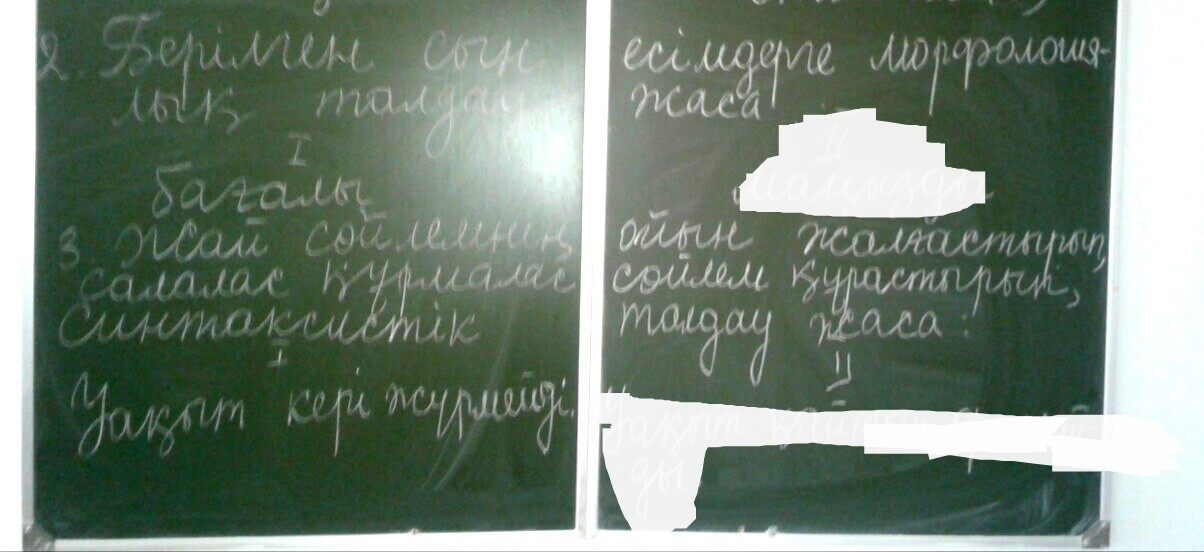 2. Берілген сын есімдерге морфология-
лық талдау жаса
I II
бағалы маңызды
3. Жай сөйлемнің ойын жалғастырып,
салалас құрмалас сөйлем құрастырып,
синтаксистік талдау жаса:
I II
Уақыт кері жүрмейді. Уақыт
ды.